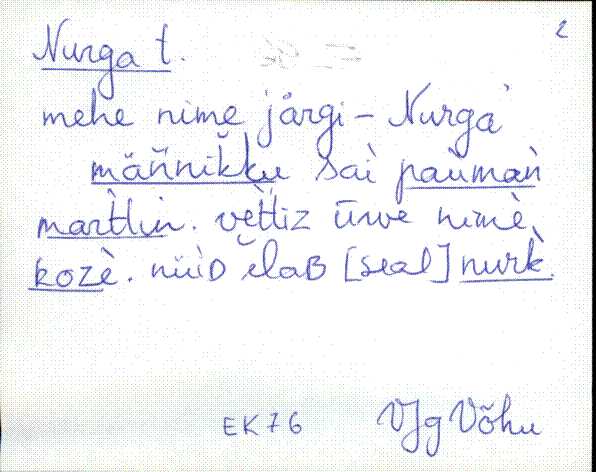 2
Nurga t.
mehe nime järgi – Nurga
männikku sai pauman
martlin. vettiz ūwe nime
koze. nüüD ĕlaB [seal] nurk.
EK 76 VJg Võhu